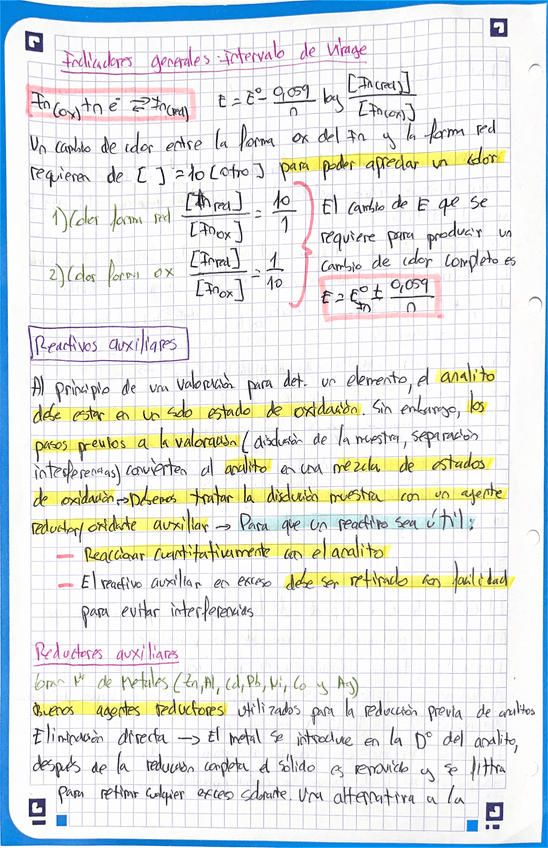 Indicadores generales: Intervalo de virage
In(ox) + n e⁻ ⇄ In(red)   E = E° - 0,059/n log [In(red)]/[In(ox)]
Un cambio de color entre la forma ox del In y la forma red
requieren de [ ] = 10 [otro] para poder apreciar un color
1) Color forma red [In red]/[In ox] = 10/1
2) Color forma ox [In red]/[In ox] = 1/10
El cambio de E que se
requiere para producir un
cambio de color completo es
E = E°In ± 0,059/n
Reactivos auxiliares
Al principio de una valoración para det. un elemento, el analito
debe estar en un solo estado de oxidación. Sin embargo, los
pasos previos a la valoración (disolución de la muestra, separación
interferencias) convierten al analito en una mezcla de estados
de oxidación → Debemos tratar la disolución muestra con un agente
reductor/oxidante auxiliar → Para que un reactivo sea útil:
— Reaccionar cuantitativamente con el analito
— El reactivo auxiliar en exceso debe ser retirado con facilidad
para evitar interferencias
Reductores auxiliares
Gran Nº de Metales (Zn, Al, Cd, Pb, Ni, Co y Ag)
Buenos agentes reductores utilizados para la reducción previa de analitos
Eliminación directa → El metal se introduce en la D° del analito,
después de la reducción completa el sólido es removido y se filtra
para retirar cualquier exceso sobrante. Una alternativa a la